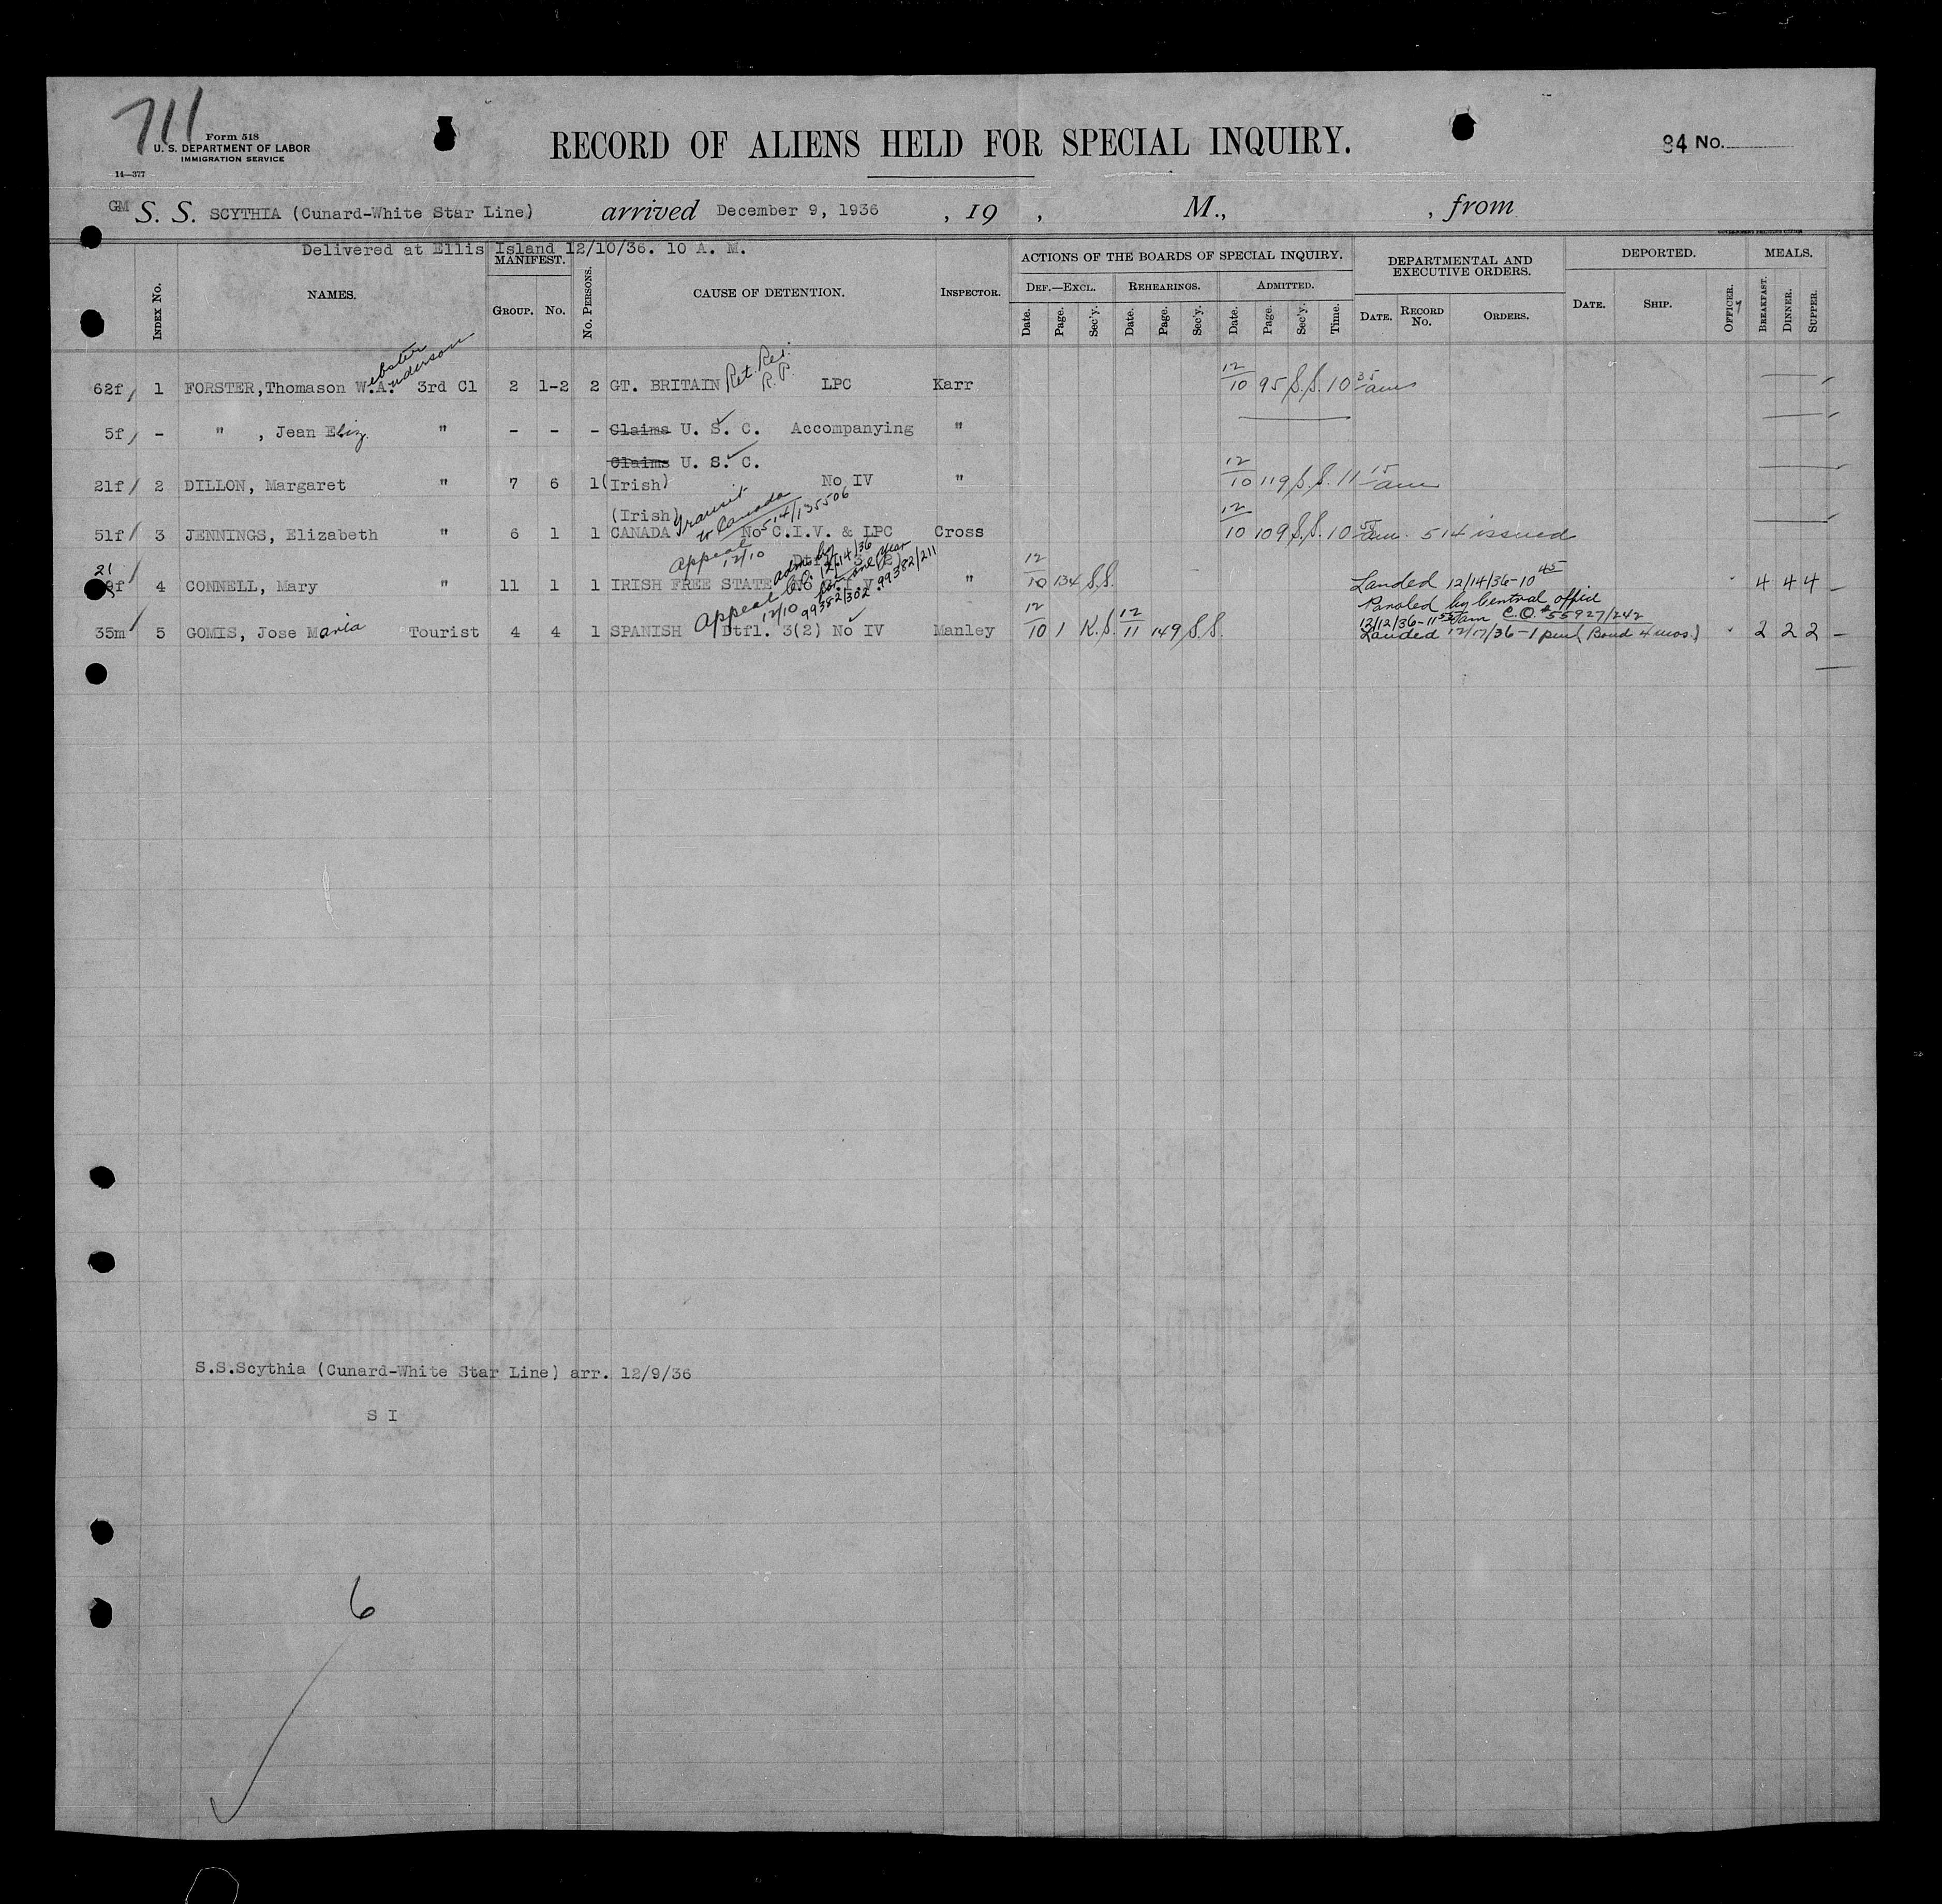 711
Form 518
U. S. DEPARTMENT OF LABOR
IMMIGRATION SERVICE
14—377
RECORD OF ALIENS HELD FOR SPECIAL INQUIRY.
84 No.
GM S. S. SCYTHIA (Cunard-White Star Line) arrived December 9, 1936 , 19 , M., , from
Delivered at Ellis Island 12/10/36. 10 A. M.
INDEX No. NAMES. MANIFEST. GROUP. No. No. PERSONS. CAUSE OF DETENTION. INSPECTOR.
ACTIONS OF THE BOARDS OF SPECIAL INQUIRY.
DEF.—EXCL. Date. Page. Sec'y. REHEARINGS. Date. Page. Sec'y. ADMITTED. Date. Page. Sec'y. Time.
DEPARTMENTAL AND EXECUTIVE ORDERS. DATE. RECORD No. ORDERS.
DEPORTED. DATE. SHIP. OFFICER.
MEALS. BREAKFAST. DINNER. SUPPER.
62f 1 FORSTER, Thomason W.ebster A.nderson 3rd Cl 2 1-2 2 GT. BRITAIN Ret. Res. R.P. LPC Karr 12/10 95 S.S. 10 35 am
5f - " , Jean Eliz. " - - - Claims U. S. C. Accompanying "
Claims U. S. C.
21f 2 DILLON, Margaret " 7 6 1 (Irish) No IV " 12/10 119 S.S. 11 15 am
(Irish) Transit to Canada 514/135506
51f 3 JENNINGS, Elizabeth " 6 1 1 CANADA No C.I.V. & LPC Cross 12/10 109 S.S. 10 am. 514 issued
Appeal 12/10 adm. by C.O. 12/14/36 for one year 99382/211
21 f 4 CONNELL, Mary " 11 1 1 IRISH FREE STATE " 12/10 134 S.S. Landed 12/14/36-10 45 4 4 4
Appeal 12/10 99382/302
Paroled by Central office
12/12/36-11 am C.O. # 55927/242
35m 5 GOMIS, Jose Maria Tourist 4 4 1 SPANISH Dtfl. 3(2) No IV Manley 12/10 1 K.S. 12/11 149 S.S. Landed 12/17/36-1 pm (Bond 4 mos.) 2 2 2
S.S.Scythia (Cunard-White Star Line) arr. 12/9/36
S I
6